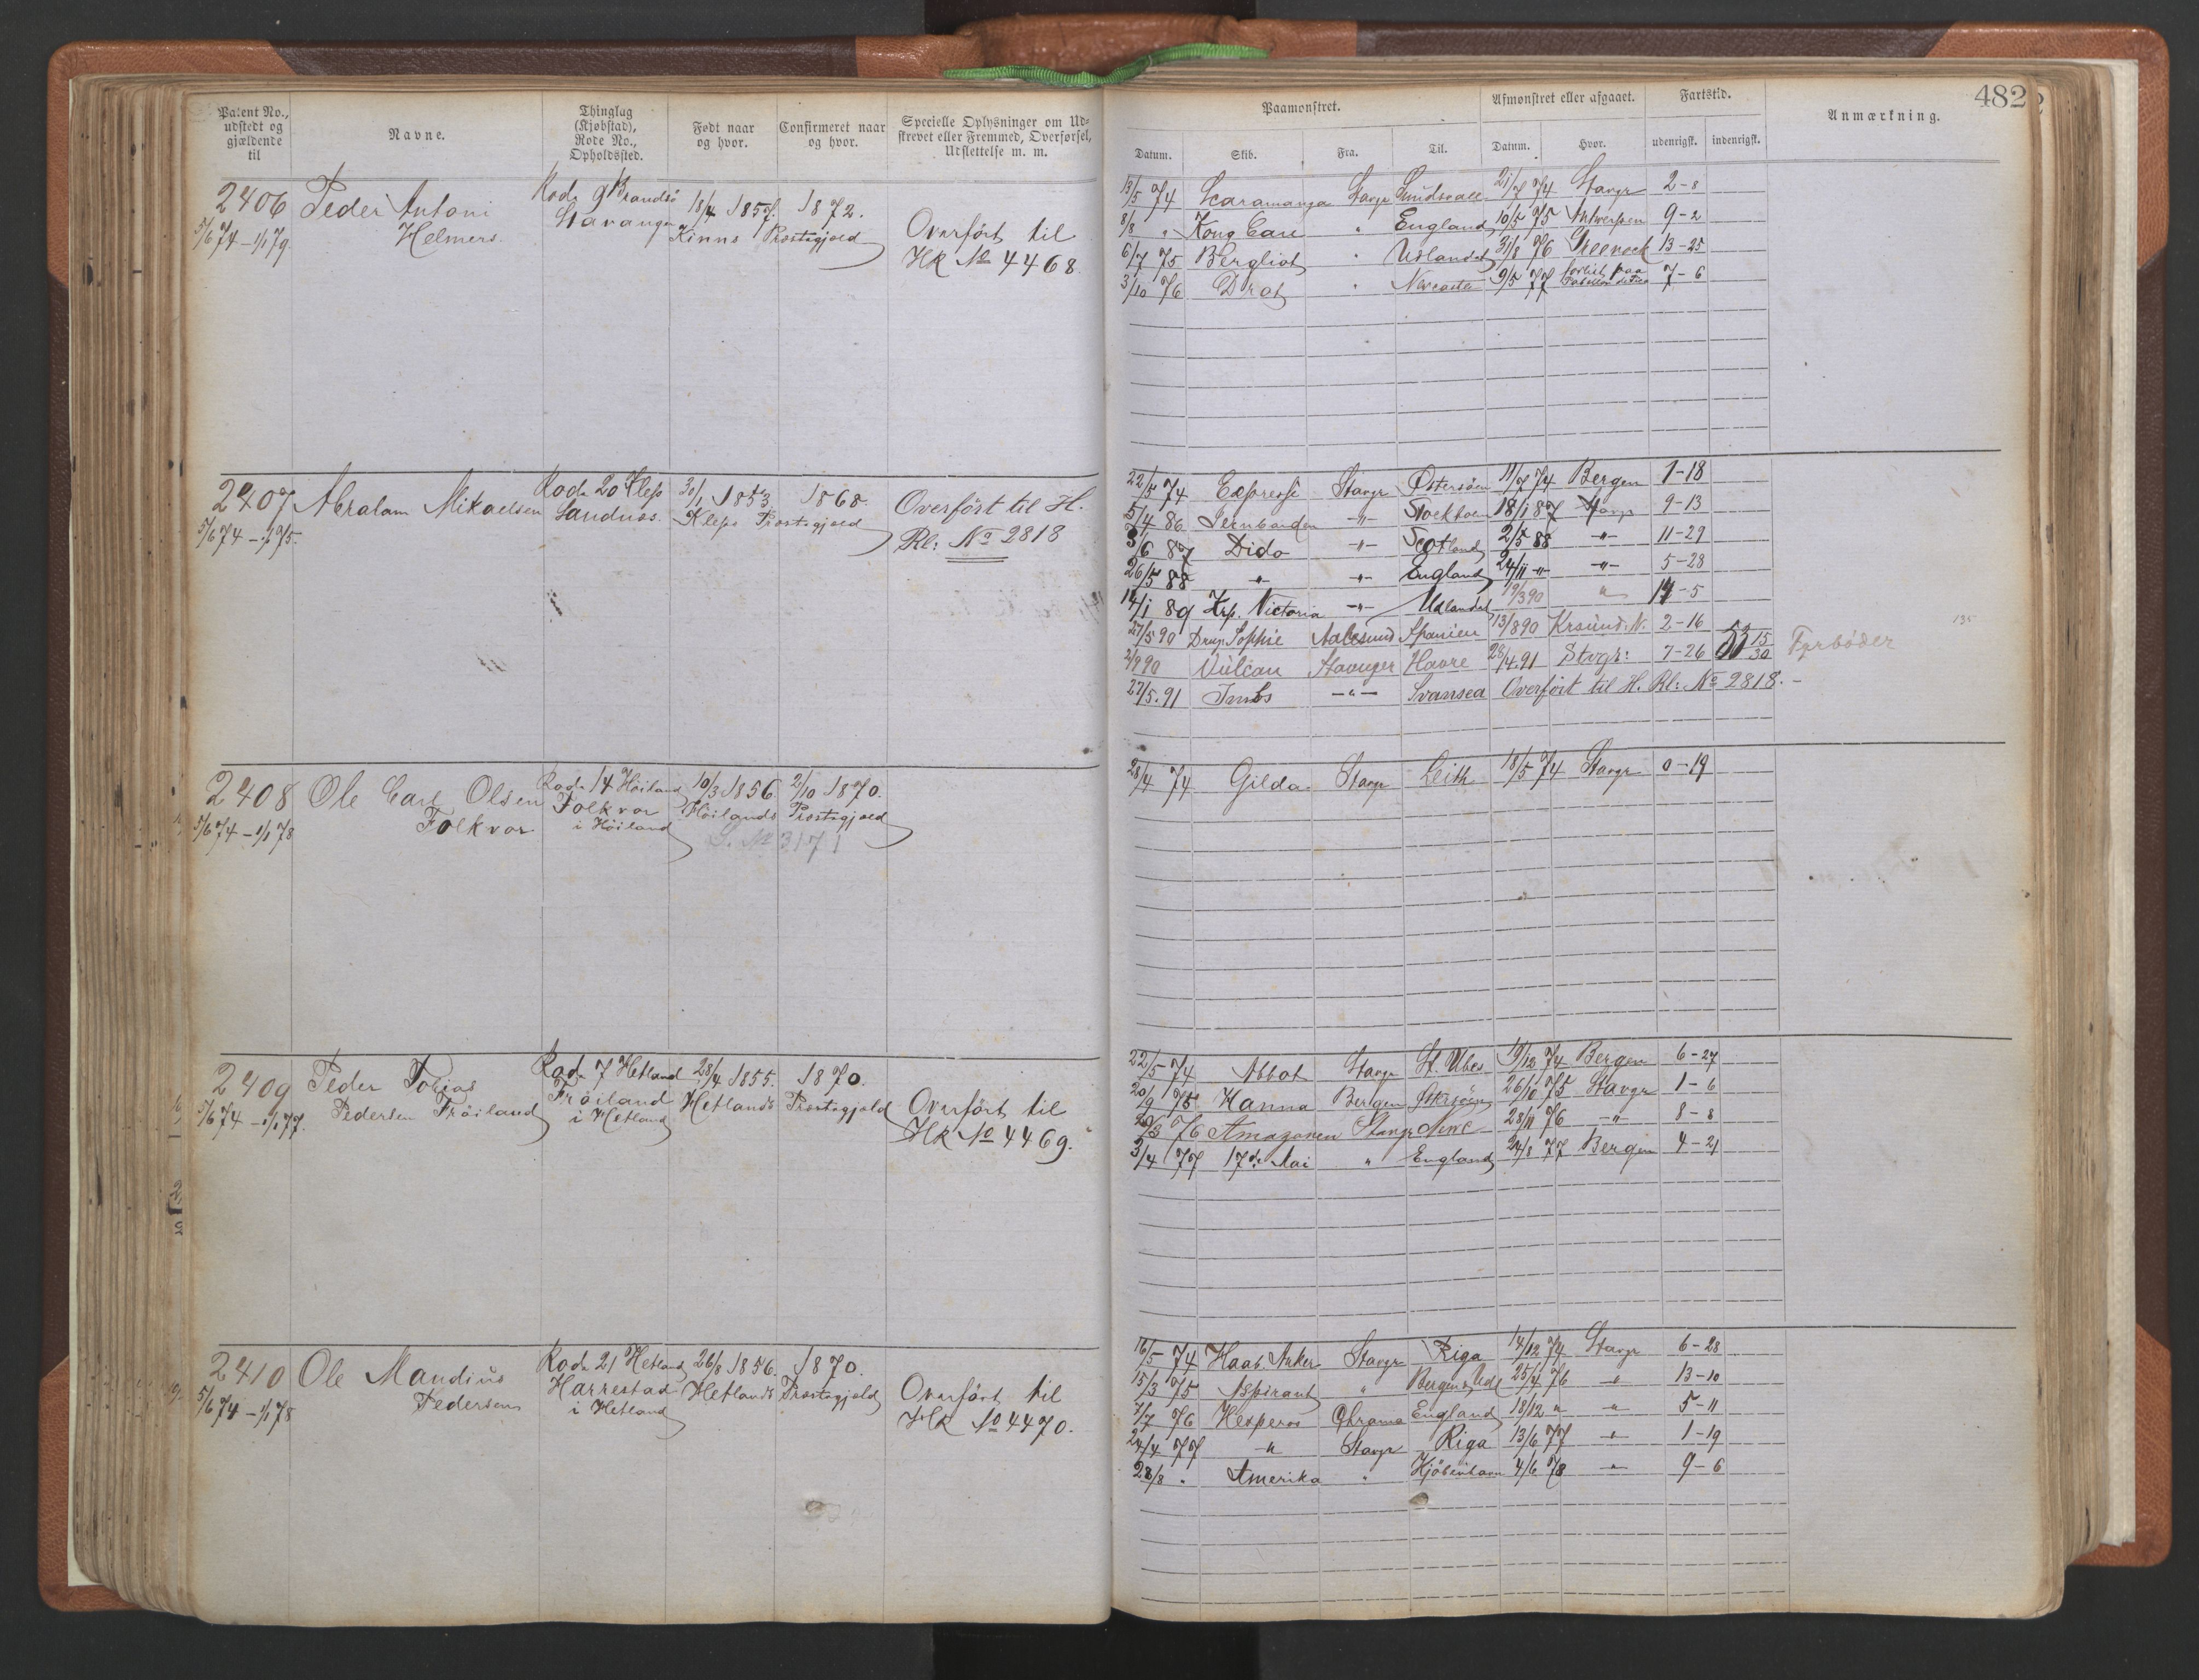 482
Patent No.,
udstedt og
gjældende
til
Navne.
Thinglag
(Kjøbstad),
Rode No.,
Opholdssted.
Født naar
og hvor.
Confirmeret naar
og hvor.
Specielle Oplysninger om Ud-
skrevet eller Fremmed, Overførsel,
Udslettelse m. m.
Paamønstret.
Afmønstret eller afgaaet.
Fartstid.
Anmærkning.
Datum. Skib. Fra. Til. Datum. Hvor. udenrigsk. indenrigsk.
2406 Peder Antoni
Helmers
5/6 74 - 1/1 79.
Rode 9
Stavanger
18/4 1857.
Kinns Præstegjæld
1872.
Overført til
HR No 4468.
13/5 74 Scaramanga Stavgr Sundsvall 21/7 74 Stavgr 2-8
8/8 " Kong Carl " England 10/5 75 Antwerpen 9-2
6/7 75 Bergliot " Udlandet 31/8 76 13-25
3/10 76 Drot " Newcastle 9/5 77 forlist paa 7-6
2407 Abraham Mikaelsen
5/6 74 - 1/1 75.
Rode 20 Klep
Sandnæs.
30/1 1853.
Kleps Præstegjæld
1868.
Overført til H.
Rl: No 2818
22/5 74 Expressé Stavgr Østersøen 11/7 74 Bergen 1-18
5/4 86 Jernbarden -"- Stockholm 18/1 87 Stavgr 9-13
3/6 87 Dido -"- Scotland 2/5 88 -"- 11-29
26/5 88 -"- -"- England 24/11 -"- -"- 5-28
14/1 89 Krp. Victoria -"- Udlandet 19/3 90 " 14-5
27/5 90 Drag. Sophie Aalesund Spanien 13/8 90 Krsund. N. 2-16
2/9 90 Vulcan Stavnger Havre 28/4.91 Stvgr: 7-26 15/30 Fyrbøder
135
27/5.91 -"- Svansea Overført til H. Rl: No 2818. -
2408 Ole Carl Olsen
Folkvor
5/6 74 - 1/1 78
Rode 14 Höiland
Folkvor
i Höiland
10/3 1856.
Höilands Præstegjæld
2/10 1870.
S. No 3171
28/4 74 Gilda Stavgr Leith 18/5 74 Stavgr 0-19
2409 Peder Tobias
Pedersen Fröiland
5/6 74 - 1/1 77.
Rode 7 Hetland
Fröiland
i Hetland
28/4 1855.
Hetlands Præstegjæld
1870.
Overført til
HR No 4469.
22/5 74 Abbot Stavgr St. Ubes 19/12 74 Bergen 6-27
20/9 75 Hanna Bergen 26/10 75 Stavgr 1-6
20/3 76 Amazonen Stavgr Newc 28/11 76 -"- 8-8
3/4 77 17de Mai " England 24/8 77 Bergen 4-21
2410 Ole Mandius
Pedersen
5/6 74 - 1/1 78
Rode 21 Hetland
Harrestad
i Hetland
26/8 1856.
Hetlands Præstegjæld
1870.
Overført til
HR No 4470.
16/5 74 Haab. Anker Stavgr Riga 14/12 74 Stavgr 6-28
15/3 75 Aspirant " Bergen & Udl 25/4 76 " 13-10
7/7 76 Hesperos England 18/12 " " 5-11
24/4 77 -"- Stavgr Riga 13/6 77 " 1-19
28/8 " Amerika " Kjöbenhavn 4/6 78 -"- 9-6